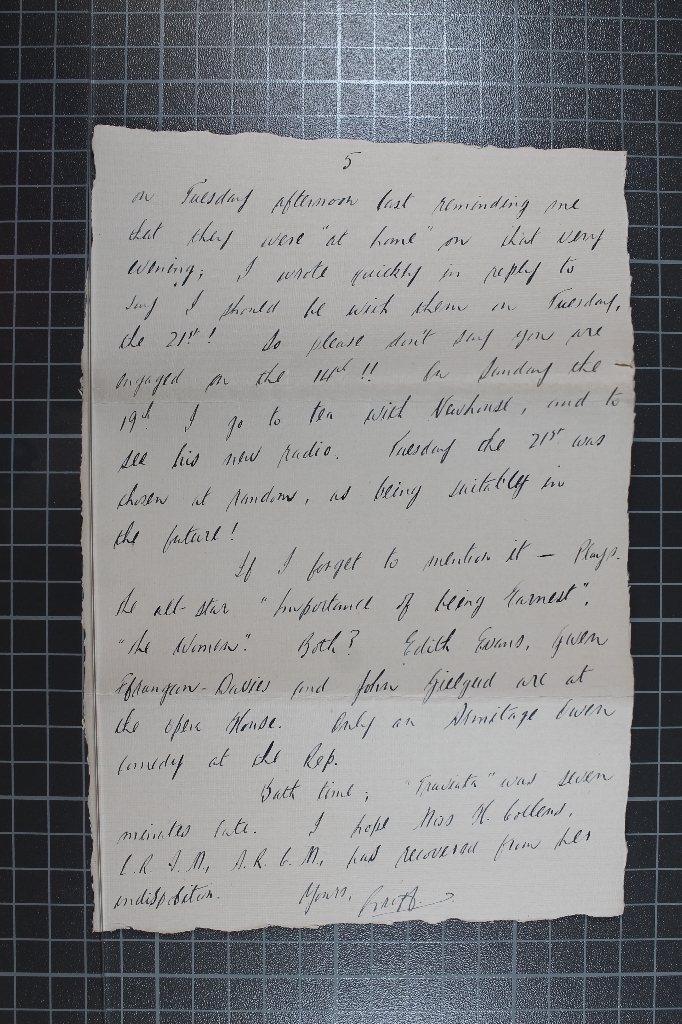 5
on Tuesday afternoon last reminding me
that they were "at home" on that very
evening; I wrote quickly in reply to
say I should be with them on Tuesday,
the 21st! So please don't say you are
engaged on the 14th!! On Sunday the
19th I go to tea with Newhouse, and to
see his new radio. Tuesday the 21st was
chosen at random, as being suitably in
the future!
If I forget to mention it — Plays.
the all-star "Importance of being Earnest".
"the Women". Both? Edith Evans, Gwen
Ffrangcon-Davies and John Gielgud are at
the Opera House. Only an Armitage Owen
comedy at the Rep.
Bath time; "Traviata" was seven
minutes late. I hope Miss H. Collens,
L.R.A.M., A.R.C.M., has recovered from her
indisposition. Yours,